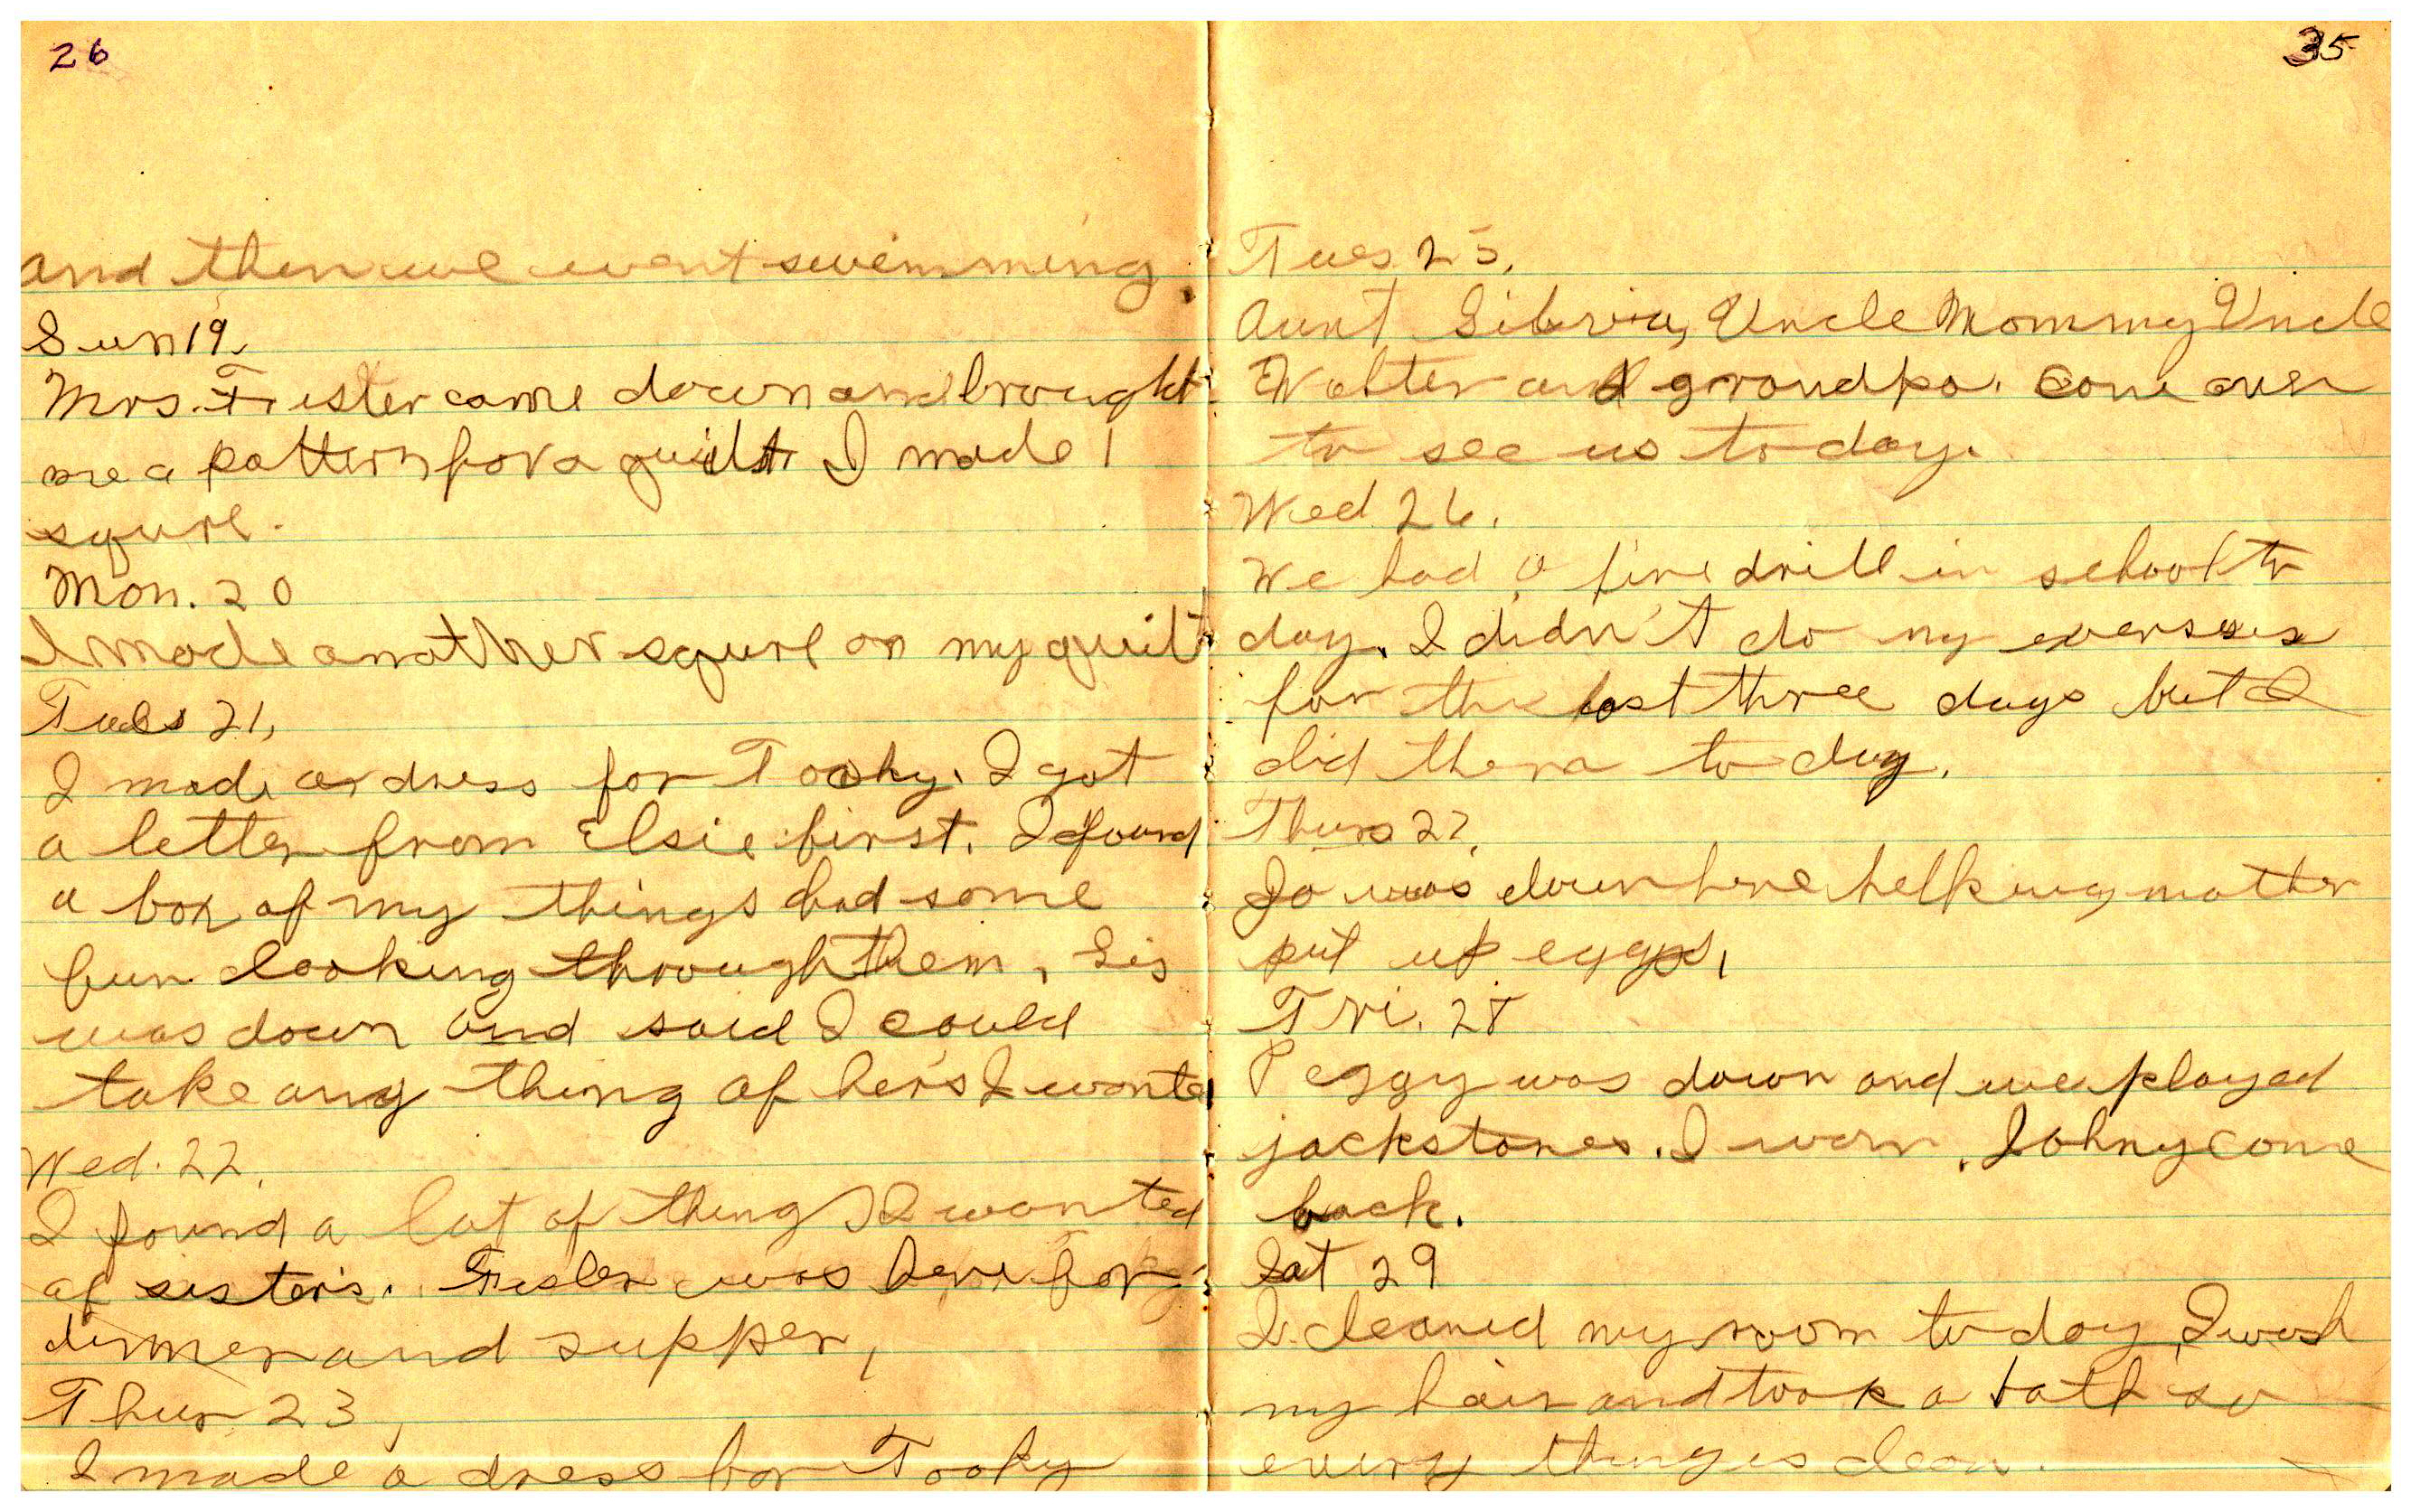 26
and then we went swimming.
Sun 19.
Mrs. Fuster came down and brought
me a pattern for a quilt I made 1
squre.
Mon. 20
I made another squre on my quilt
Tues 21,
I made a dress for Tooky. I got
a letter from Elsie first. I found
a box of my things had some
fun looking through them, Sis
was down and said I could
take any thing of her's I wanted
Wed. 22.
I found a lot of things I wanted
of sister's. was here for
dinner and supper,
Thur 23,
I made a dress for Tooky
35
Tues 25.
Aunt Uncle Mommy Uncle
Walter and grandpa. come over
to see us to day.
Wed 26.
We had a fire drill in school to
day. I didn't do my exersises
for the last three days but I
did them to day.
Thurs 27.
Jo was down here help my mother
put up eggs,
Fri. 28
Peggy was down and we played
jackstones. I won. Johny come
back.
Sat 29
I cleaned my room to day, I wash
my hair and took a bath so
every thing is clean.